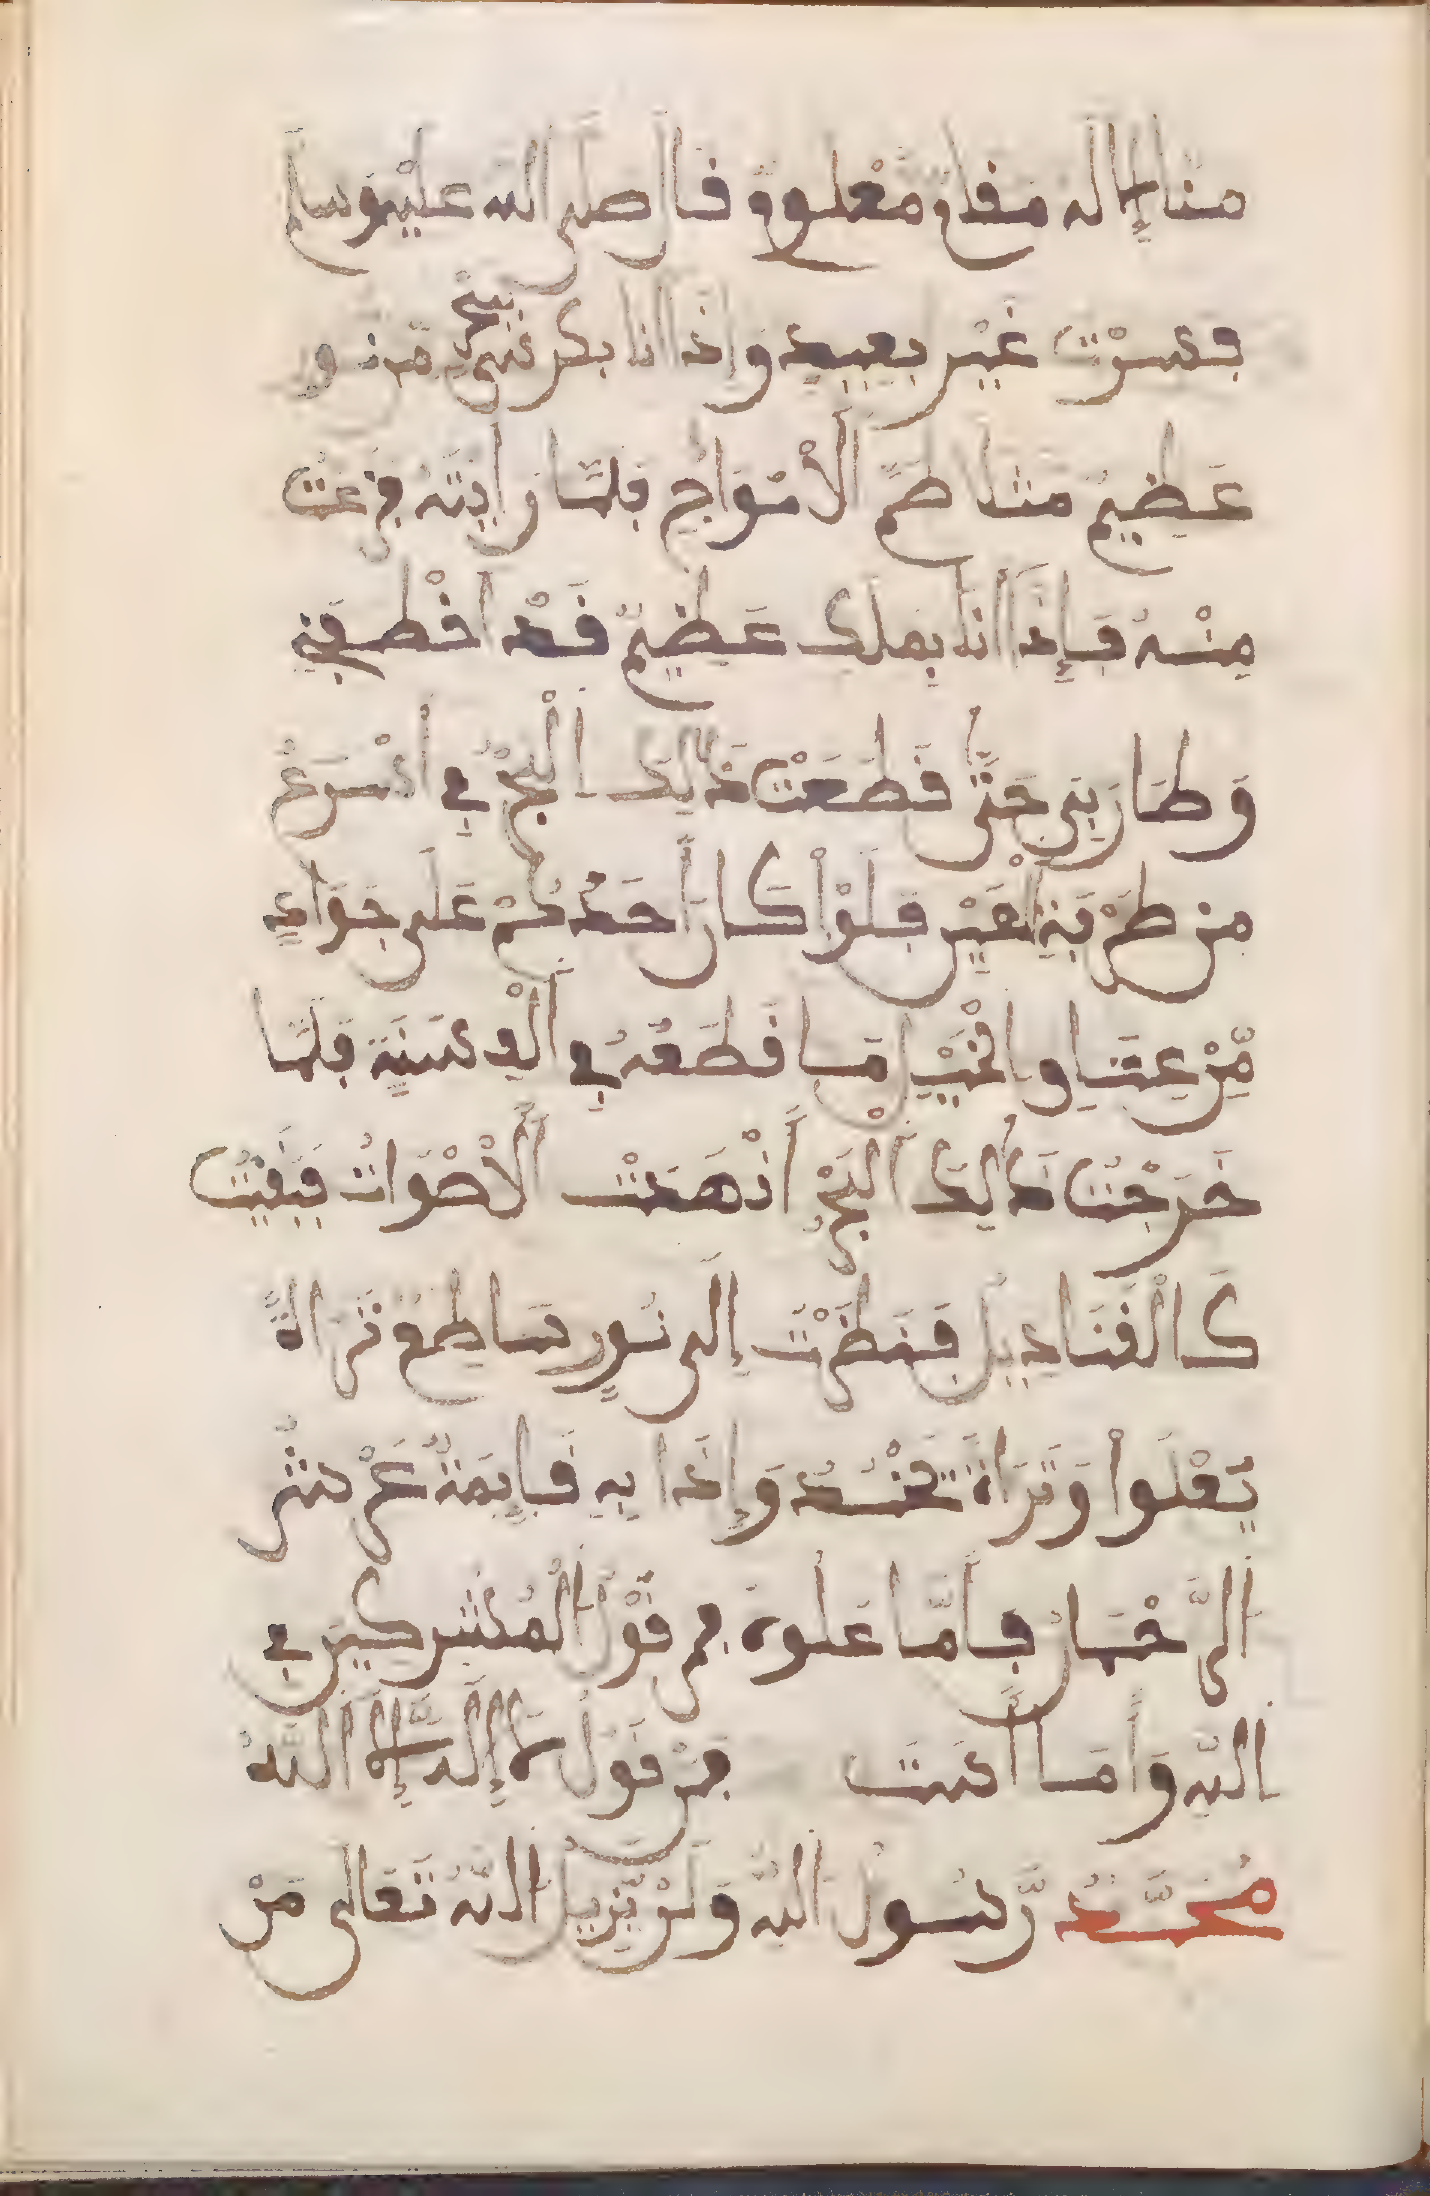 منا إلا له مقام معلوم قال صلى الله عليه وسلم
فسرت غير بعيد وإذا أنا بكرسي من نور
عَظِيم متلاطم الأمْوَاج فلمّا رَأيته فزعت
مِنْه فإذا أنا بملك عَظِيم قَدْ اخْطفني
وَطار بِي حَتَّى قَطَعْت ذَالِك الْبَحْر فِي أسْرَع
من طرْفَةِ الْعَيْن فلَوْ كَان أحَدُكُمْ عَلَى جَوَادٍ
مِّنْ عِتَاقِ الْخَيْل مَا قَطَعَهُ فِي ألْفِ سَنَةٍ فَلَمَّا
خَرَجْتُ ذَالِكَ الْبَحْرِ انْهَدَتْ الأَصْوَاتُ فَبَقِيَتْ
كَالْقَنَادِيلِ فَنَظَرْتُ إِلَى نُورٍ سَاطِعٍ تَرَاهُ
يَعْلُوا وَتَرَاهُ تَحْتَهُ وَإِذَا بِهِ قَايِمَةٌ عَنْ
فَأَمَّا عَلُوهُ فمن قَوْل الْمُشْرِكِين فِي
اللَّهِ وَأَمَا فَمِنْ قَوْل لَا إِلَهَ إِلَّا اللَّهُ
مُحَمَّدٌ رَّسُولُ اللَّهِ وَلَنْ يَّزِيلَ اللَّهُ تَعَالَى مَنْ